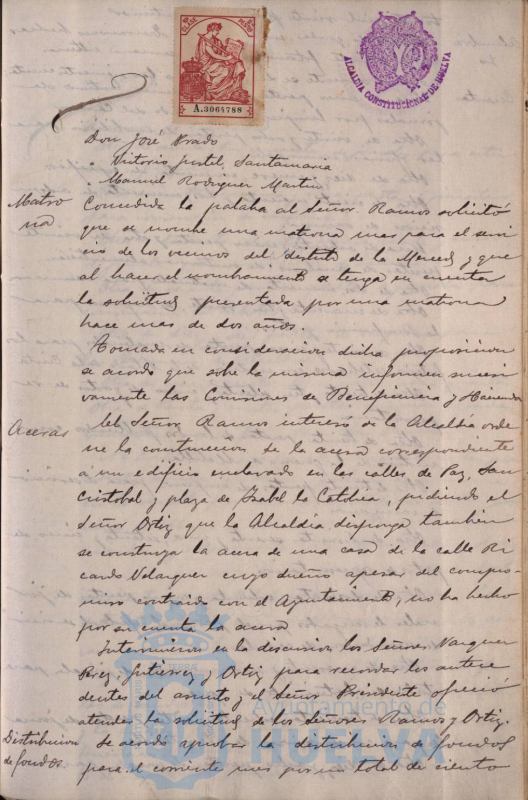 A.3064788
ALCALDIA CONSTITUCIONAL DE HUELVA
Don José Prado
" Victorio Justel Santamaria
" Manuel Rodriguez Martin
Matro
na
Concedida la palabra al Señor Ramos solicitó
que se nombre una matrona mas para el servi
cio de los vecinos del distrito de la Merced y que
al hacer el nombramiento se tenga en cuenta
la solicitud presentada por una matrona
hace mas de dos años.
Tomada en consideracion dicha proposicion
se acordó que sobre la misma informen sucesi
vamente las Comisiones de Beneficencia y Hacienda
Aceras
El Señor Ramos interesó de la Alcaldía orde
ne la construccion de la acera correspondiente
á un edificio enclavado en las calles de Paz, San
Cristobal y plaza de Isabel la Catolica, pidiendo el
Señor Ortiz que la Alcaldía disponga tambien
se construya la acera de una casa de la calle Ri
cardo Velazquez cuyo dueño apesar del compro
miso contraido con el Ayuntamiento, no ha hecho
por su cuenta la acera
Intervinieron en la discusion los Señores Vazquez
Perez, Gutierrez y Ortiz para recordar los antece
dentes del asunto y el Señor Presidente ofreció
atender la solicitud de los Señores Ramos y Ortiz.
Distribucion
de fondos.
Se acordó aprobar la distribucion de fondos
para el corriente mes por un total de ciento
Ayuntamiento de
HUELVA